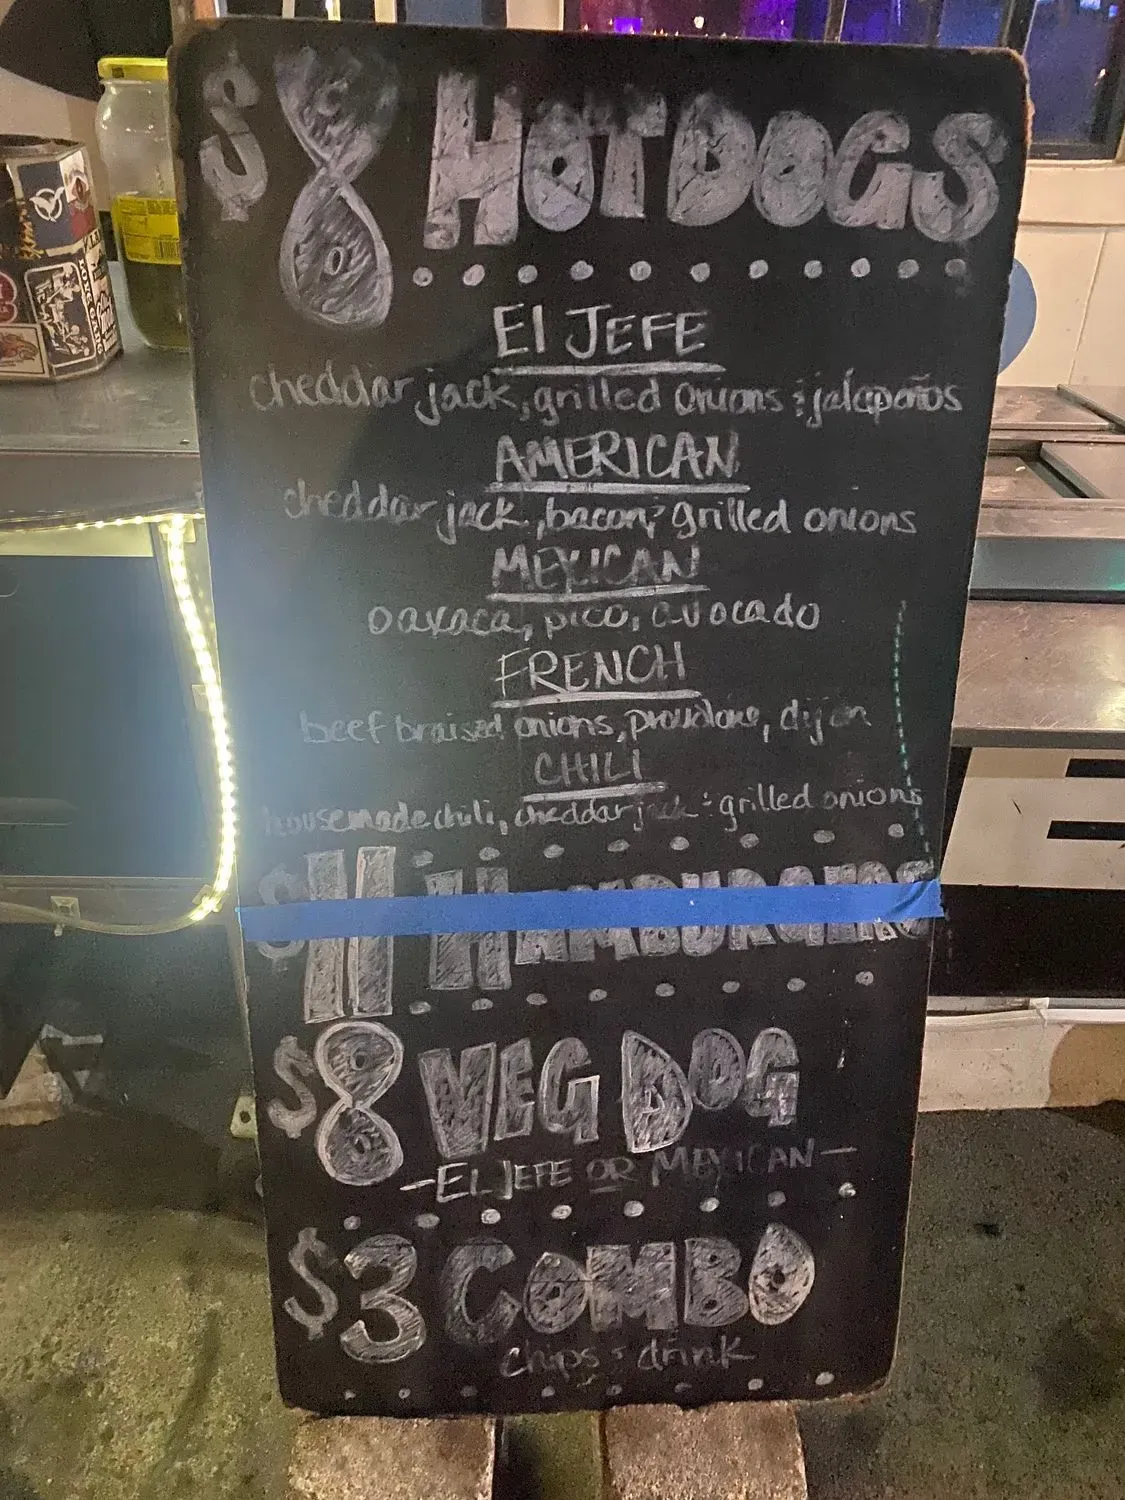 $8 HOTDOGS
El JEFE
cheddar jack, grilled onions & jalapeños
AMERICAN
cheddar jack, bacon, & grilled onions
MEXICAN
oaxaca, pico, avocado
FRENCH
beef braised onions, provolone, dijon
CHILI
housemade chili, cheddar jack & grilled onions
$11 HAMBURGERS
$8 VEG DOG
-EL JEFE OR MEXICAN-
$3 COMBO
chips & drink